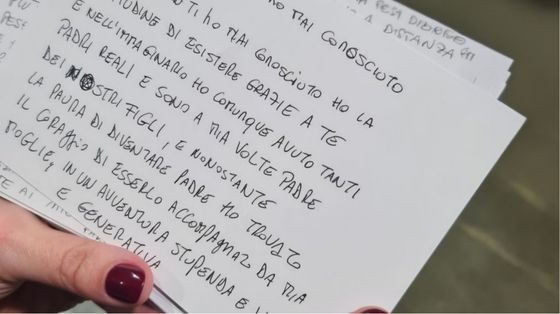 PESI DIVERSO
A DISTANZA MI
TI HO MAI CONOSCIUTO
MAI CONOSCIUTO HO LA
DI ESISTERE GRAZIE A TE
E NELL'IMMAGINARIO HO COMUNQUE AVUTO TANTI
PADRI REALI E SONO A MIA VOLTE PADRE
DEI NOSTRI FIGLI, E NONOSTANTE
LA PAURA DI DIVENTARE PADRE HO TROVATO
IL CORAGGIO DI ESSERLO ACCOMPAGNATO DA MIA
MOGLIE, IN UN AVVENTURA STUPENDA E
E GENERATIVA